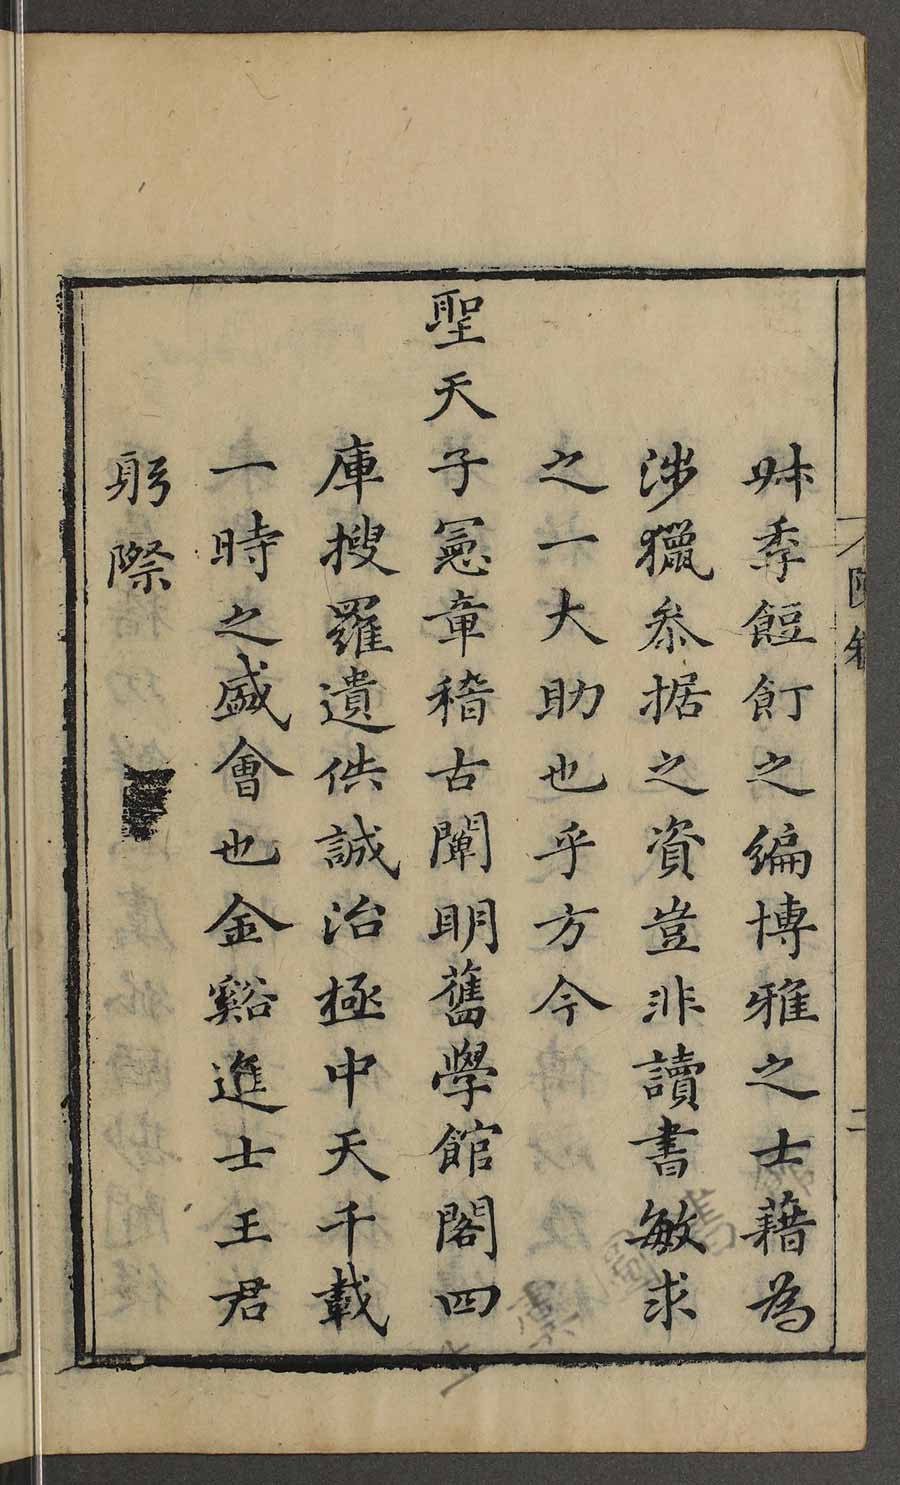 叔季餖飣之編博雅之士藉為
涉獵叅据之資豈非讀書敏求
之一大助也乎方今
聖天子憲章稽古闡明舊學館閣四
庫搜羅遺佚誠治極中天千載
一時之盛會也金谿進士王君
躬際
二